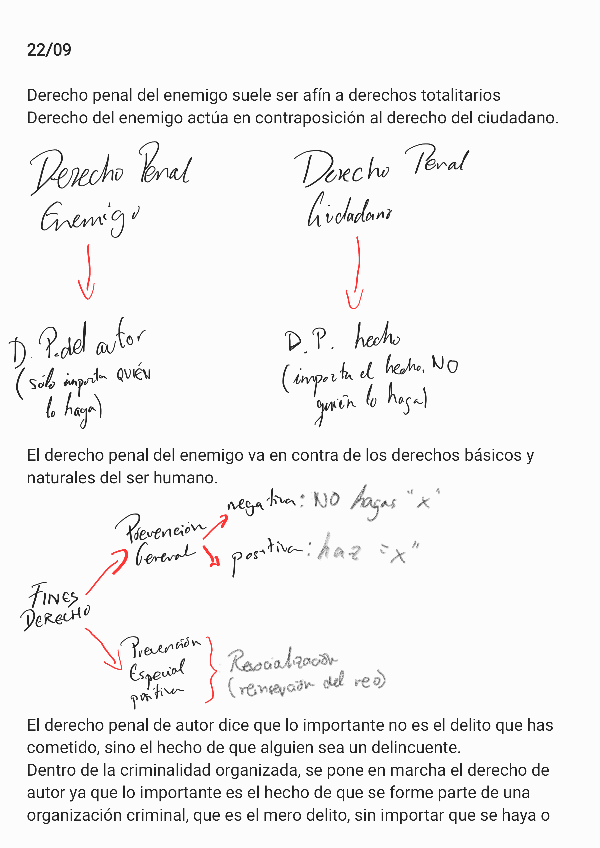 22/09
Derecho penal del enemigo suele ser afín a derechos totalitarios
Derecho del enemigo actúa en contraposición al derecho del ciudadano.
Derecho Penal
Enemigo
Derecho Penal
Ciudadano
D. P. del autor
(sólo importa QUIÉN
lo haga)
D. P. hecho
(importa el hecho, NO
quién lo haga)
El derecho penal del enemigo va en contra de los derechos básicos y
naturales del ser humano.
FINES
DERECHO
Prevención
General
negativa: NO hagas "x"
positiva: haz "x"
Prevención
Especial
positiva
Resocialización
(reinserción del reo)
El derecho penal de autor dice que lo importante no es el delito que has
cometido, sino el hecho de que alguien sea un delincuente.
Dentro de la criminalidad organizada, se pone en marcha el derecho de
autor ya que lo importante es el hecho de que se forme parte de una
organización criminal, que es el mero delito, sin importar que se haya o